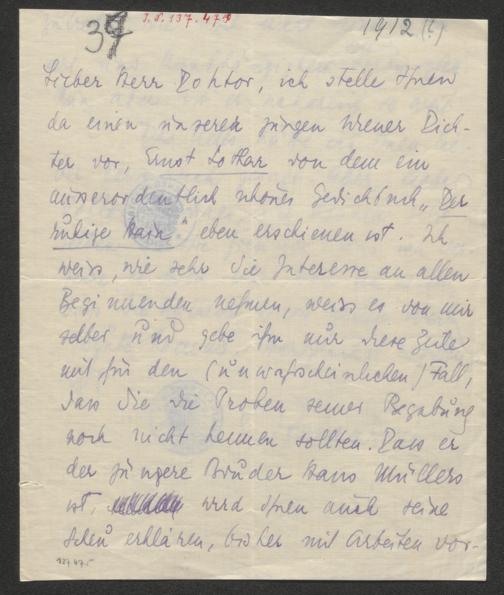 37
I.N. 137.475
1912 (?)
Lieber Herr Doktor, ich stelle Ihnen
da einen unserer jungen Wiener Dich-
ter vor, Ernst Lothar von dem ein
ausserordentlich schönes Gedichtbuch „Der
ruhige Hain" eben erschienen ist. Ich
weiss, wie sehr Sie Interesse an allen
Beginnenden nehmen, weiss es von mir
selber und gebe ihm nur diese Zeile
mit für den (unwahrscheinlichen) Fall,
dass Sie die Proben seiner Begabung
noch nicht kennen sollten. Dass er
der jüngere Bruder Hans Müllers
ist, wird Ihnen auch seine
Scheu erklären, bisher mit Arbeiten vor-
137.475